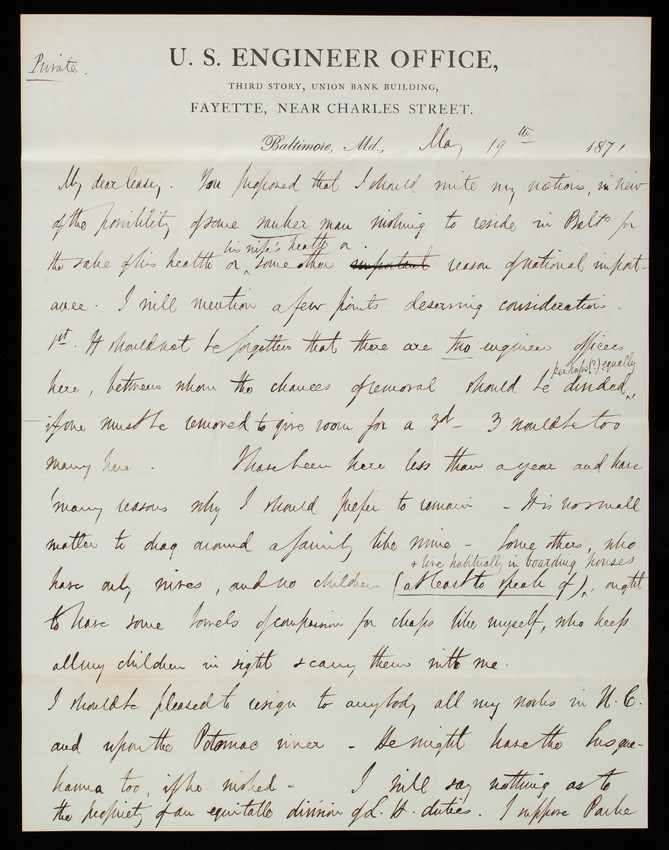 Private.
U. S. ENGINEER OFFICE,
THIRD STORY, UNION BANK BUILDING,
FAYETTE, NEAR CHARLES STREET.
Baltimore, Md., May 19th 1871
My dear Casey. You proposed that I should write my notions, in view
of the possibility of some ranker man wishing to reside in Balto for
his wife's health or
the sake of his health or some other important reason of national import-
ance. I will mention a few points deserving consideration.
1st. It should not be forgotten that there are two engineer officers
perhaps (?) equally
here, between whom the chances of removal should be divided,
if one must be removed to give room for a 3d - 3 would be too
many here. I have been here less than a year and have
many reasons why I should prefer to remain - It is no small
matter to drag around a family like mine - Some others, who
+ live habitually in boarding houses
have only wives, and no children (at least to speak of), ought
to have some bowels of compassion for chaps like myself, who keep
all my children in sight & carry them with me.
I should be pleased to resign to anybody all my works in N. C.
and upon the Potomac river - He might have the Susque-
hanna too, if he wished - I will say nothing as to
the propriety of an equitable division of L. H. duties. I suppose Parke